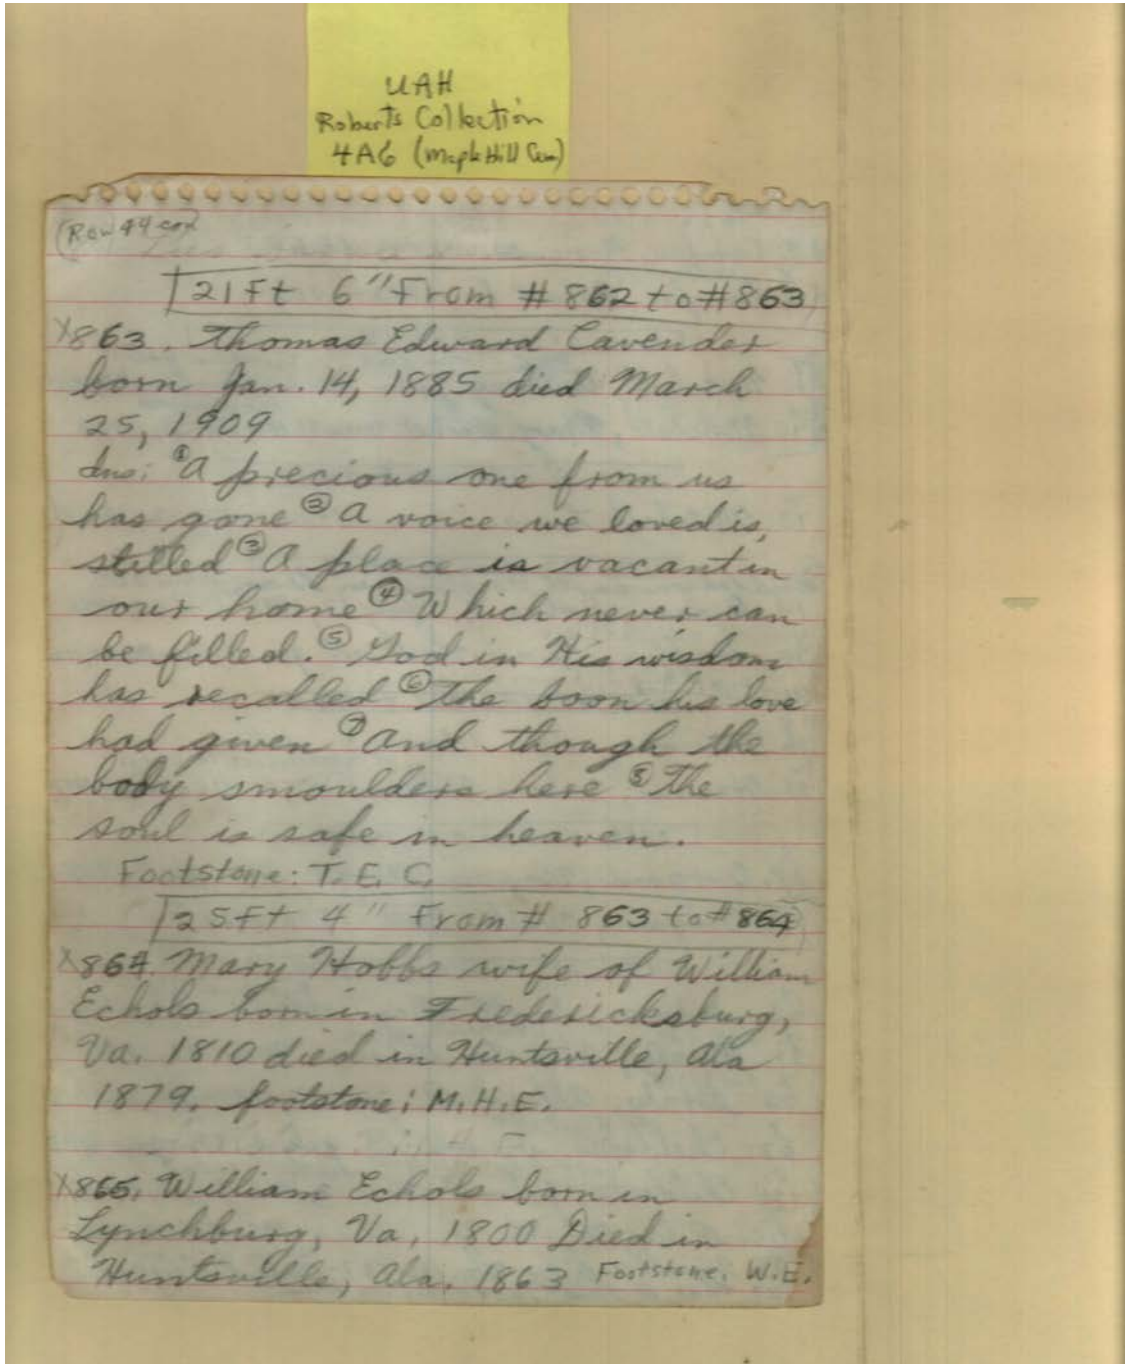 UAH
Roberts Collection
4A6 (Maple Hill Cem)
(Row 44 con
21Ft 6" From # 862 to #863
X863. Thomas Edward Cavender
born Jan. 14, 1885 died March
25, 1909
Ins: ① A precious one from us
has gone ② A voice we loved is,
stilled ③ A place is vacant in
our home ④ Which never can
be filled. ⑤ God in His wisdom
has recalled ⑥ The boon his love
had given ⑦ And though the
body smoulders here ⑧ The
soul is safe in heaven.
Footstone: T. E. C.
25Ft 4" From # 863 to #864
X864. Mary Hobbs wife of William
Echols born in Fredericksburg,
Va. 1810 died in Huntsville, Ala
1879. footstone: M.H.E.
X865. William Echols born in
Lynchburg, Va, 1800 Died in
Huntsville, Ala. 1863 Footstone. W.E.